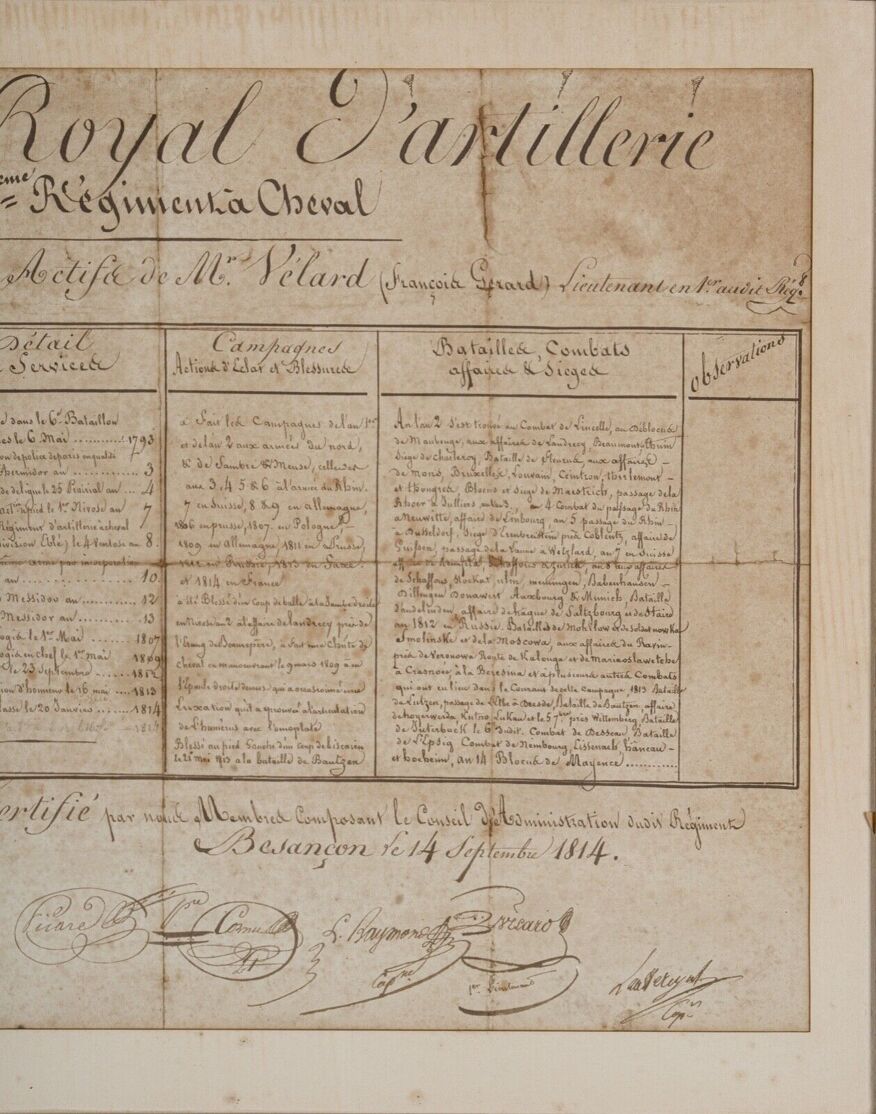 Royal D'artillerie
eme Régiment à Cheval
Actifs de Mr. Vélard (François Gérard) Lieutenant en 1er audit Régt
Détail
Services
e dans le 6e Bataillon
es le 6 Mai ........... 1793
hermidor an ............ 3
de de ligne le 25 Prairial an .... 4
le 1er Nivose an 7
Régiment d'artillerie à cheval
Division Eblé) le 4 Ventose an 8.
an ............ 10.
Messidor an ........... 12
Messidor an ........... 13
logis le 1er Mai 1807
logis en Chef le 1er Mai 1809
le 23 Septembre ..... 1812
ion d'honneur le 16 mai .... 1813
lasse le 20 Janvier .... 1814
Campagnes
Actions d'Eclat et Blessures
a fait les Campagnes de l'an 1er
et de l'an 2 aux armées du nord,
& de Sambre & Meuse, celles des
ans 3, 4 5 & 6 à l'armée du Rhin.
7 en Suisse, 8 & 9 en allemagne,
1806 en prusse, 1807. en Pologne,
1809 en Allemagne, 1811 en Prusse
1812 en Russie, 1813 en Saxe
et 1814 en France
a été Blessé d'un Coup de balle à la Jambe droite
a l'affaire de landrecy près de
l'Etang de Beaurepaire, a fait une Chûte de
cheval en manoeuvrant le 9 mars 1809 à
l'Epaule droite qui a occasionné une
Luxation qu'il a éprouvé à l'articulation
de l'humérus avec l'omoplate
Blessé au pied Gauche d'un coup de biscaien
le 21 mai 1813 à la bataille de Bautzen
Batailles, Combats
affaires & Sièges
An l'an 2 s'est trouvé au Combat de Lincelle, au Déblocus
de Maubeuge, aux affaires de Landrecy, Beaumont
Siège de Charleroy, Bataille de Fleurus, aux affaires
de Mons, Bruxelles, Louvain, Thirlemont
et Thongres, Blocus et Siège de Maestrich, passage de la
Rhoer à Julliers an 4 Combat du passage du Rhin
a Neuwitte, affaire de Limbourg, an 5 passage du Rhin
à Dusseldorf, Siège d'Erenbreitsein près Coblentz, affaires de
Guissen, passage de la Lanne à Wetzlard, an 7 en Suisse
a Zurick, an 8 aux affaires
de Schaffous, Stockak, ulm, meiningen, Babenhausen
Dillingen Donawert Auxbourg & Munick, Bataille
d'hndelinden, affaire de hague de Saltzbourg et de Staire
an 1812 en Russie. Batailles de Mohilow & de Soldnowka
Smolinske et de la Moscowa, aux affaires du Ravin
près de Veronowa Route de Kalouga et de Mariaoslawetche
à Crasnoë, à la Beresina et a plusieurs autres Combats
qui ont eu lieu dans le Courant de cette Campagne, 1813 Bataille
de Lutzen, passage de l'Elbe à Dresde, Bataille de Bautzen, affaire
de hoyerwerda, Lukau et le 5 7bre près Wittemberg, Bataille
de Juterbock le 6 dudit. Combat de Desseau, Bataille
de L'Epsig Combat de Nembourg, Eissenak, haneau
et hocheim, an 14 Blocus de Mayence ............
observations
Certifié par nous Membres Composant le Conseil d'Administration dudit Régiment
Besançon le 14 Septembre 1814.
Picard
Cornu
L. Raymond
Capne
1er Lieutenant
Capne